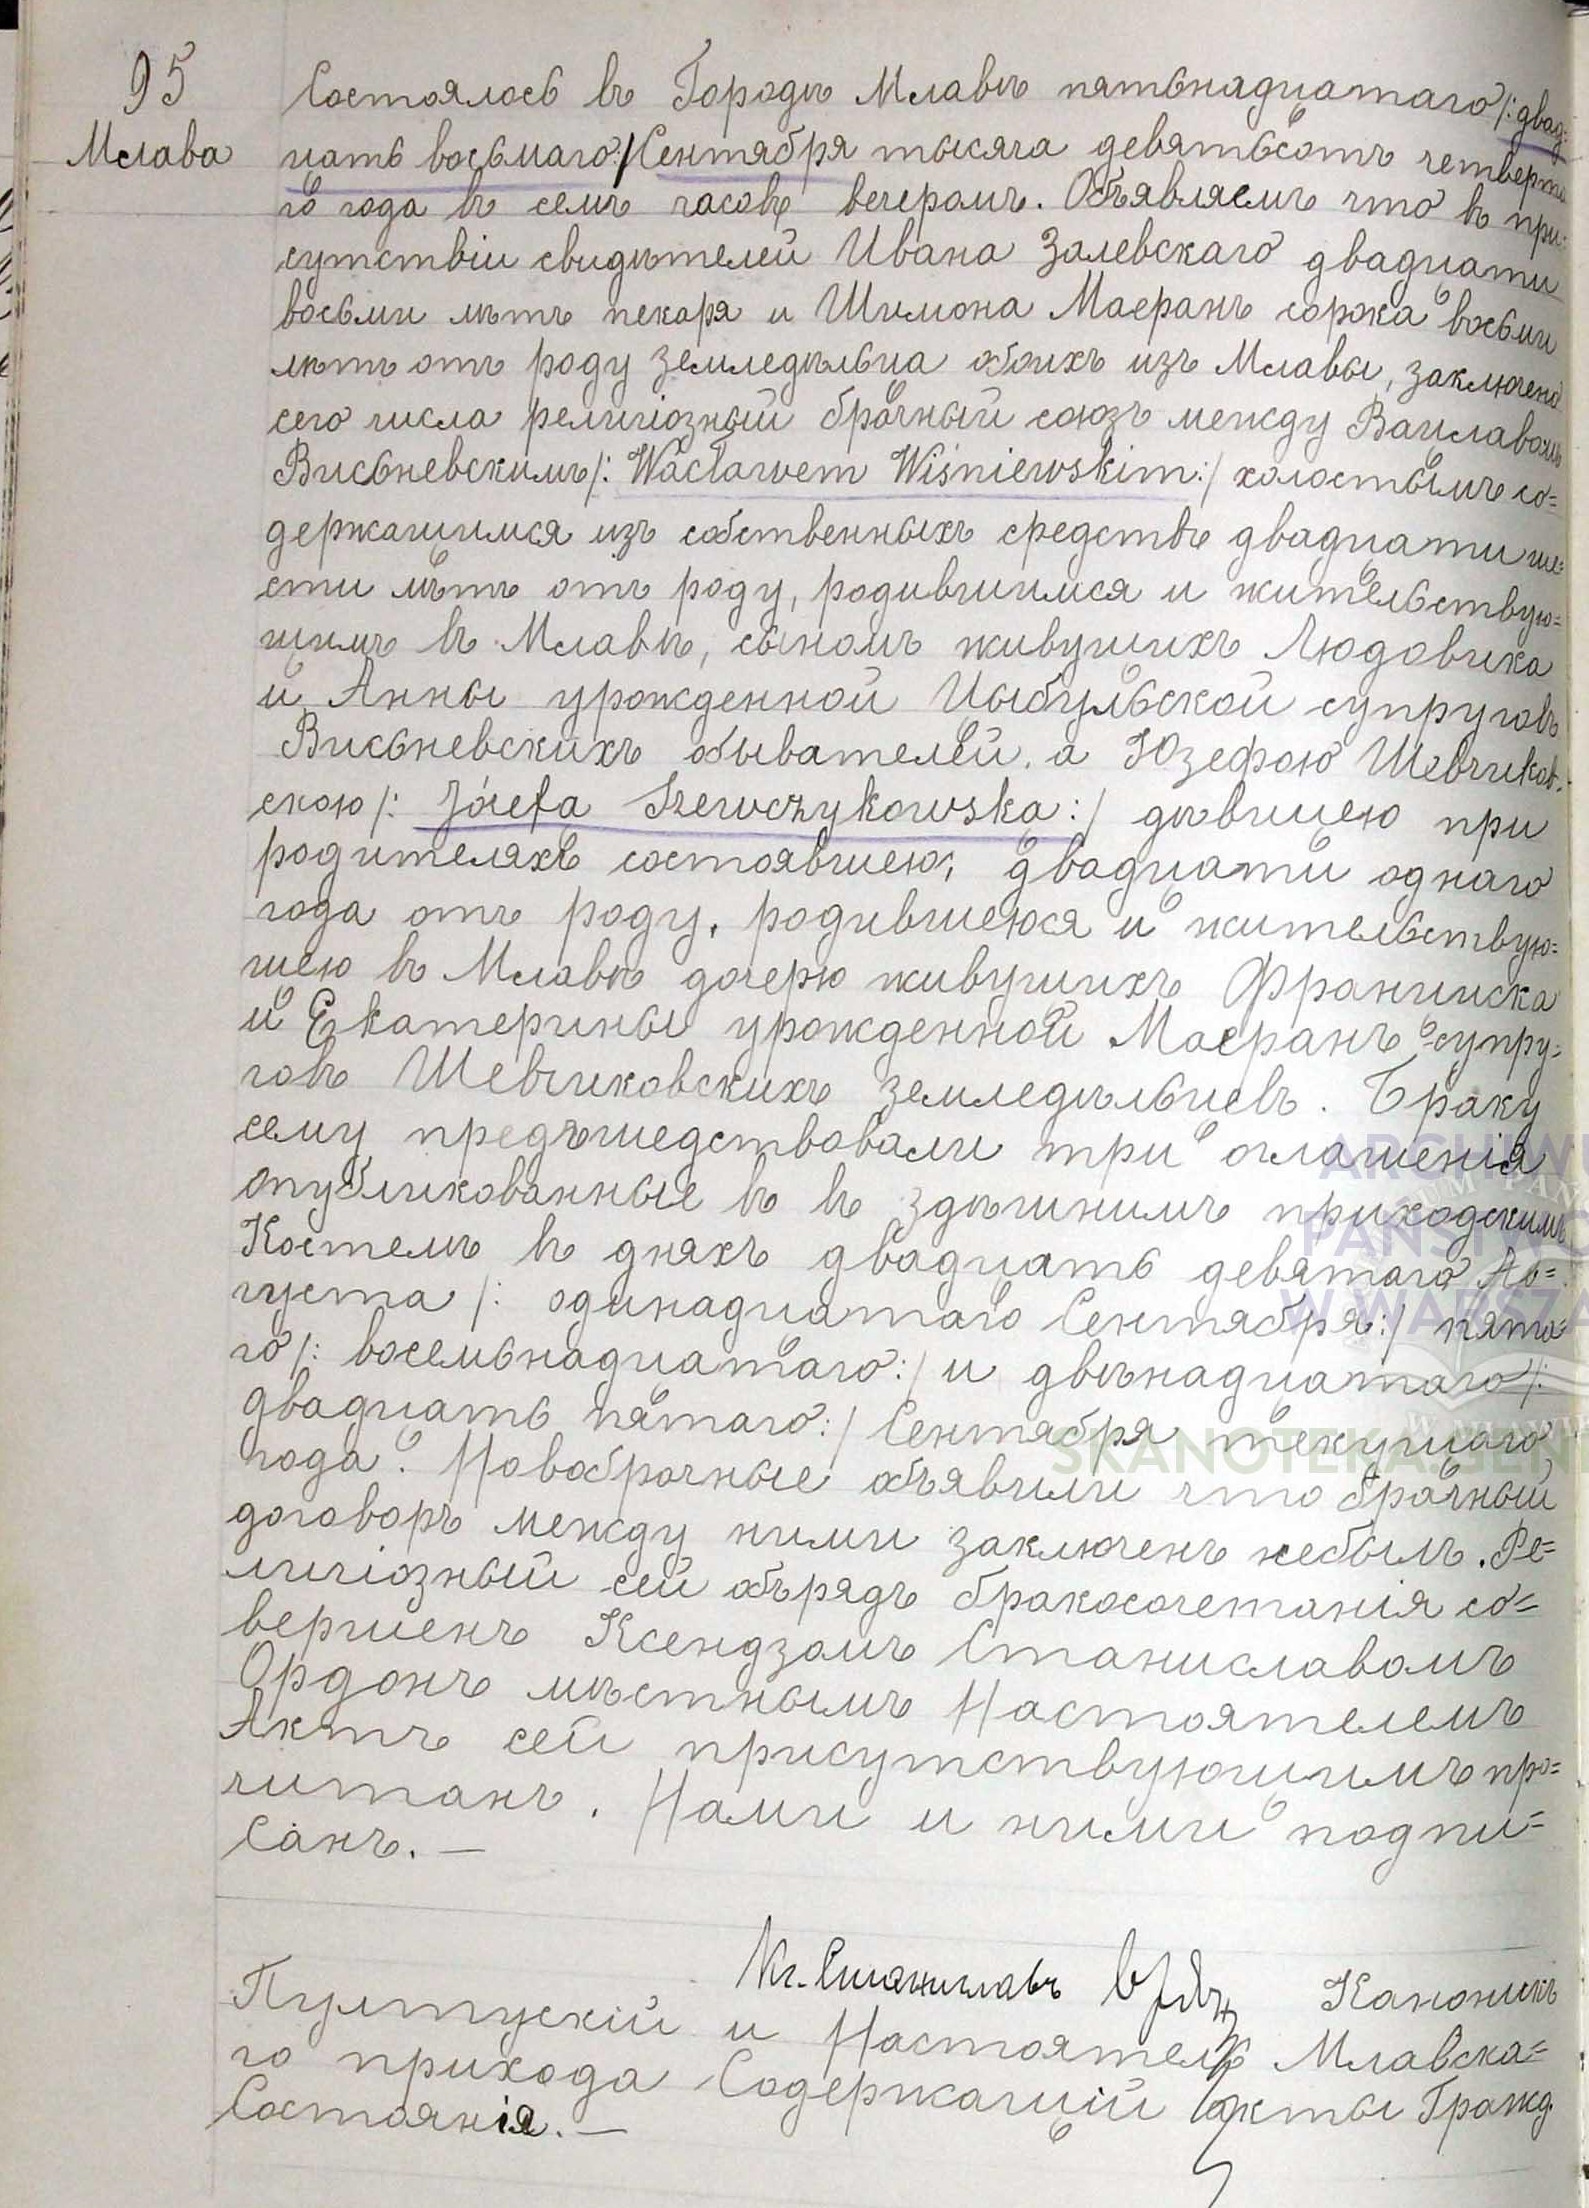 95
Млава
Состоялось въ Городѣ Млавѣ пятьнадцатаго /: двад=
цать восьмаго :/ Сентября тысяча девятьсотъ четверта
го года въ семъ часовъ вечеромъ. Объявляемъ что въ при=
сутствіи свидѣтелей Ивана Залевскаго двадцати
восьми лѣтъ пекаря и Шимона Маеранъ сорока восьми
лѣтъ отъ роду земледѣльца обоихъ изъ Млавы, заключенъ
сего числа религіозный брачный союзъ между Вацлавомъ
Висьневскимъ /: Wacławem Wiśniewskim :/ холостымъ со=
держащимся изъ собственныхъ средствъ двадцати ше=
сти лѣтъ отъ роду, родившимся и жительствую=
щимъ въ Млавѣ, сыномъ живущихъ Людовика
и Анны урожденной Цыбульской супруговъ
Висьневскихъ обывателей, а Юзефою Шевчиков=
скою /: Józefa Szewczykowska :/ дѣвицею при
родителяхъ состоявшею, двадцати однаго
года отъ роду, родившеюся и жительствую=
щею въ Млавѣ дочерю живущихъ Францишка
и Екатерины урожденной Маеранъ супру=
говъ Шевчиковскихъ земледѣльцевъ. Браку
сему предъшедствовали три оглашенія
опубликованные въ въ здѣшнимъ приходскимъ
Костелъ въ дняхъ двадцать девятаго Ав=
густа /: одинадцатаго Сентября :/ пята=
го /: восемьнадцатаго :/ и двѣнадцатаго /:
двадцать пятаго :/ Сентября текущаго
года. Новобрачные объявили что брачный
договоръ между ними заключенъ небылъ. Ре=
лигіозный сей обърядъ бракосочетанія со=
вершенъ Ксендзомъ Станиславомъ
Ордонъ мѣстнымъ Настоятелемъ
Актъ сей присутствующимъ про=
читанъ. Нами и ними подпи=
санъ. —
Кс. Станиславъ Ордонъ Каноникъ
Пултускій и Настоятель Млавска=
го прихода Содержащій Акты Гражд.
Состоянія. —
ARCHIWU
PAŃSTWO
W WARSZA
W MŁAWIE
SKANOTEKA.GEN